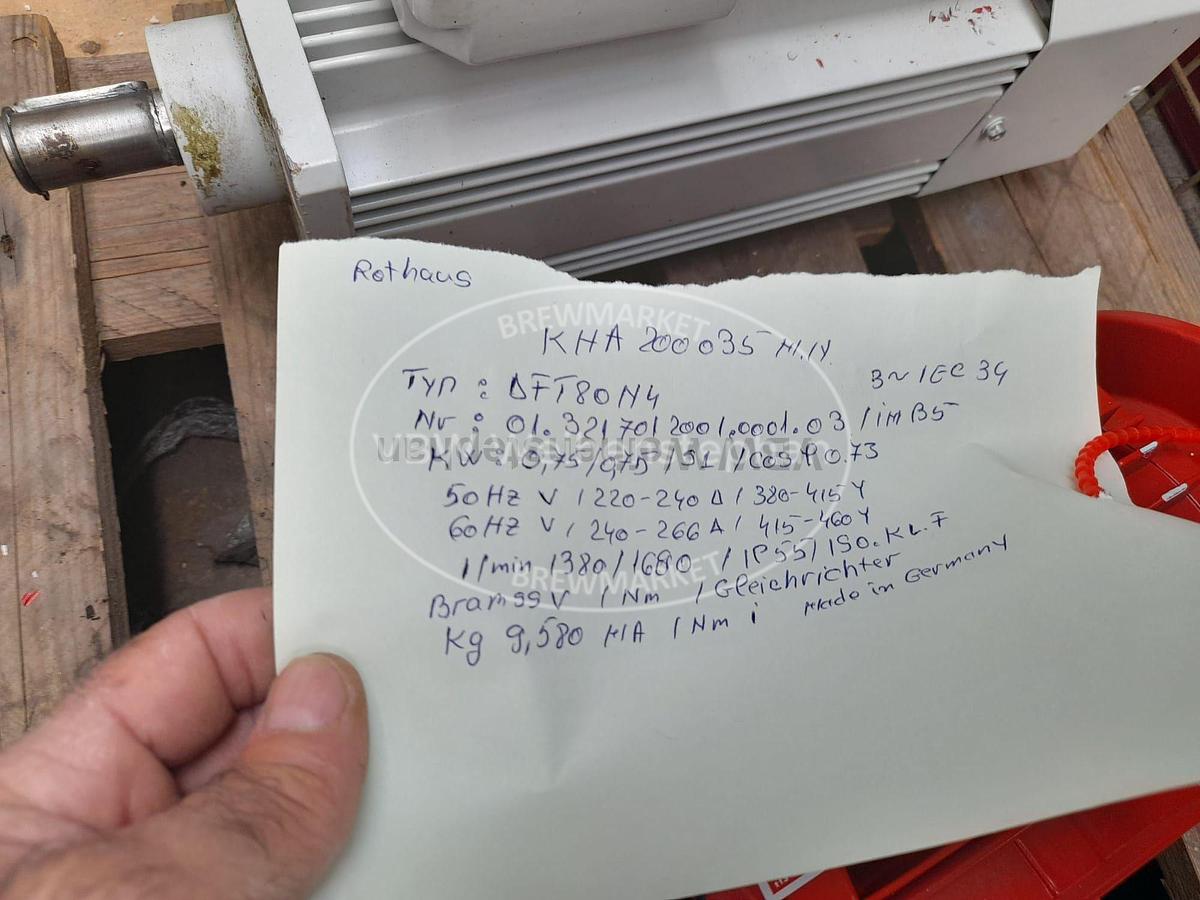 Rothaus
BREWMARKET
KHA 200035 H1.1Y
Typ : DFT80N4
3~ IEC 34
Nr : 01.3217012001.0001.03 / IM B5
KW : 0,75/0,75 / S1 / COS φ 0.73
50 HZ V / 220-240 Δ / 380-415 Y
60 HZ V / 240-266 Δ / 415-460 Y
1/min 1380/1680 / IP55/ ISO. KL. F
BREWMARKET
Bramss V / Nm / Gleichrichter
Kg 9,580 HIA / Nm i Made in Germany